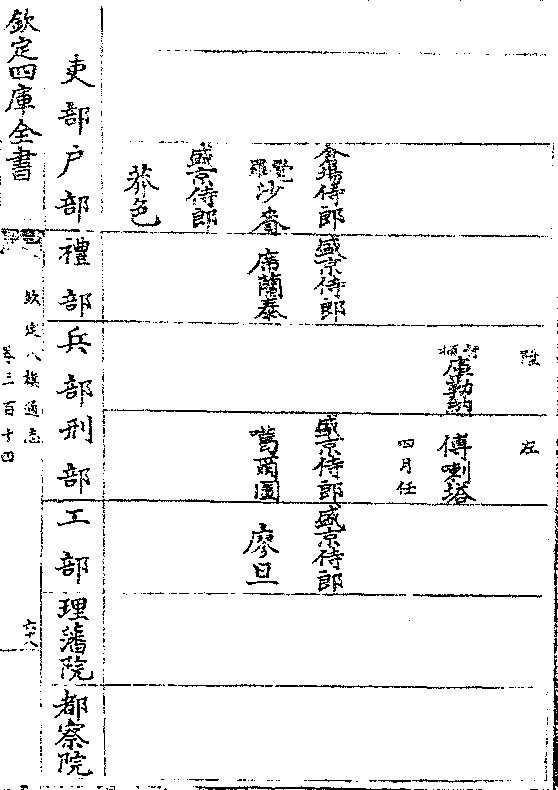 陞
左
庫勒納
傅喇塔
四月任
倉場侍郎
盛京侍郎
盛京侍郎
盛京侍郎
覺羅沙賚
席蘭泰
噶爾圖
廖旦
盛京侍郎
莽色
吏部
户部
禮部
兵部
刑部
工部
理藩院
都察院
欽定四庫全書
欽定八旗通志
卷三百十四
六十八